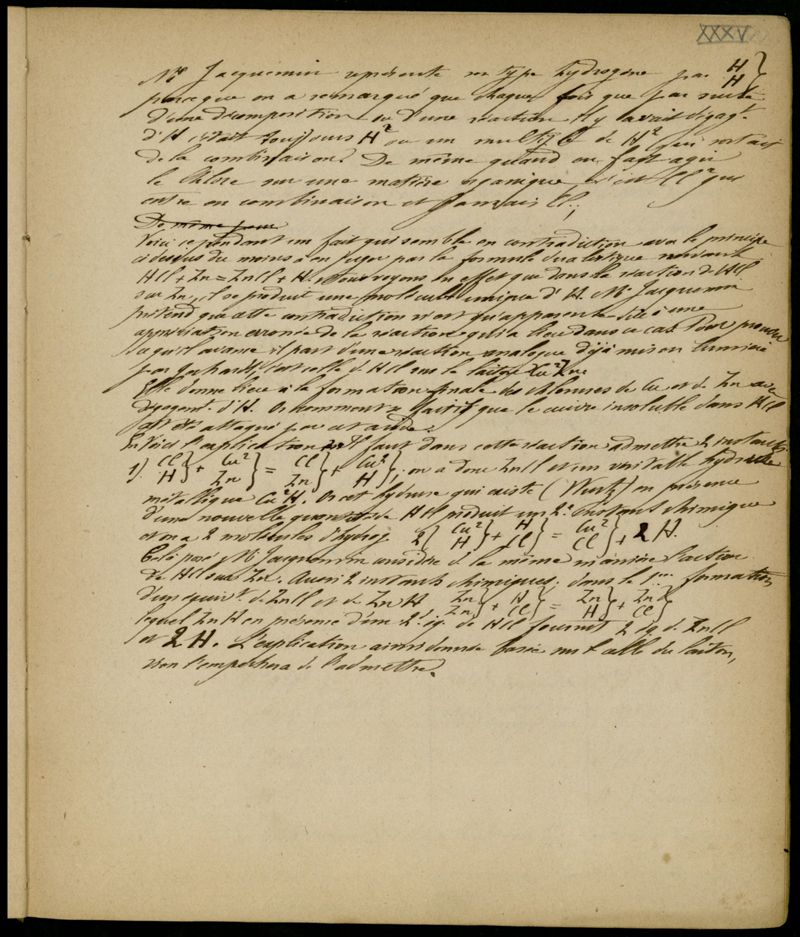 XXXV
Mr Jacquemin représente un type hydrogène par H H }
parceque on a remarqué que chaque fois que par suite
d'une décomposition ou d'une réaction il y avait dégagt
d'H c'était toujours H² ou un multiple de H² qui sortait
de la combinaison. De même quand on fait agir
le Chlore sur une matière organique c'est Cl² qui
entre en combinaison et jamais Cl.
De même pour
Voici cependant un fait qui semble en contradiction avec le principe
ci dessus du moins à en juger par la formule suivante
HCl + Zn = ZnCl + H. Nous voyons en effet que dans la réaction de HCl
sur Zn, il se produit une molécule unique d'H. Mr Jacquemin
prétend que cette contradiction n'est qu'apparente à une
appréciation erronée de la réaction qui a lieu dans ce cas. Pour prouver
ce qu'il avance il part d'une réaction analogue déjà mise en lumière
par Gerhardt, c'est celle d'HCl sur le laiton Cu² Zn.
Elle donne lieu à la formation finale des chlorures de Cu et de Zn avec
dégagent. d'H. Or comment se fait-il que le cuivre insoluble dans HCl
ait été attaqué par cet acide.
En voici l'explication. Il faut dans cette réaction admettre 2 instants
1) Cl H } + Cu² Zn } = Cl Zn } + Cu² H }. on a donc ZnCl et un véritable hydrure
métallique Cu²H. Or cet hydrure qui existe (Wurtz) en présence
d'une nouvelle quantité de HCl produit un 2e instant chimique
et on a 2 molécules d'hydrog. 2 { Cu² H } + H Cl } = Cu² Cl } + 2 H.
Celà posé Mr Jacquemin considère de la même manière l'action
de HCl sur Zn. Aussi 2 instants chimiques. dans le 1er formation
d'un équivt de ZnCl et de ZnH Zn Zn } + H Cl } = Zn H } + Zn Cl }
lequel ZnH en présence d'un 2e éq. de HCl fournit 2 éq. de ZnCl
et 2 H. L'explication ainsi donnée basée sur celle du laiton,
rien n'empêchera de l'admettre.